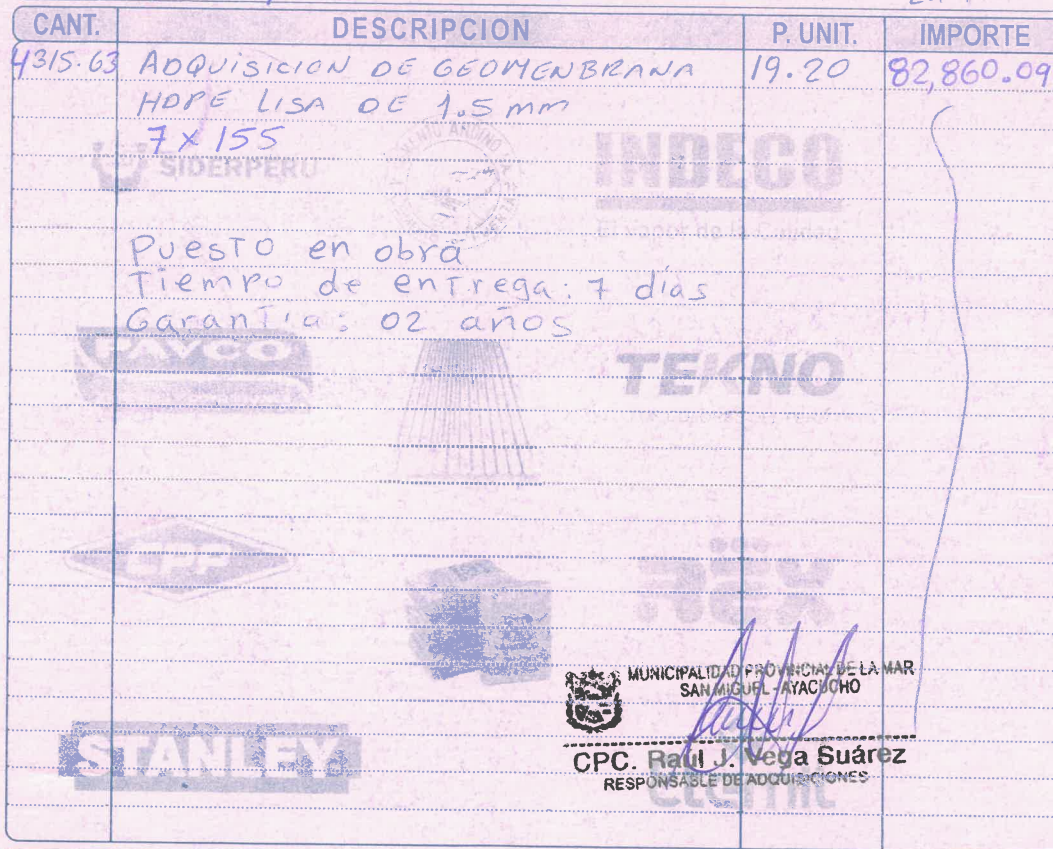 CANT. DESCRIPCION P. UNIT. IMPORTE
4315.63 ADQUISICION DE GEOMENBRANA 19.20 82,860.09
HDPE LISA DE 1.5 mm
7 x 155
SIDERPERU
INDECO
Puesto en obra
Tiempo de entrega: 7 días
Garantía: 02 años
PAVCO
TEKNO
CPP
REX
MUNICIPALIDAD PROVINCIAL DE LA MAR
SAN MIGUEL - AYACUCHO
STANLEY
CPC. Raúl J. Vega Suárez
RESPONSABLE DE ADQUISICIONES
eternit